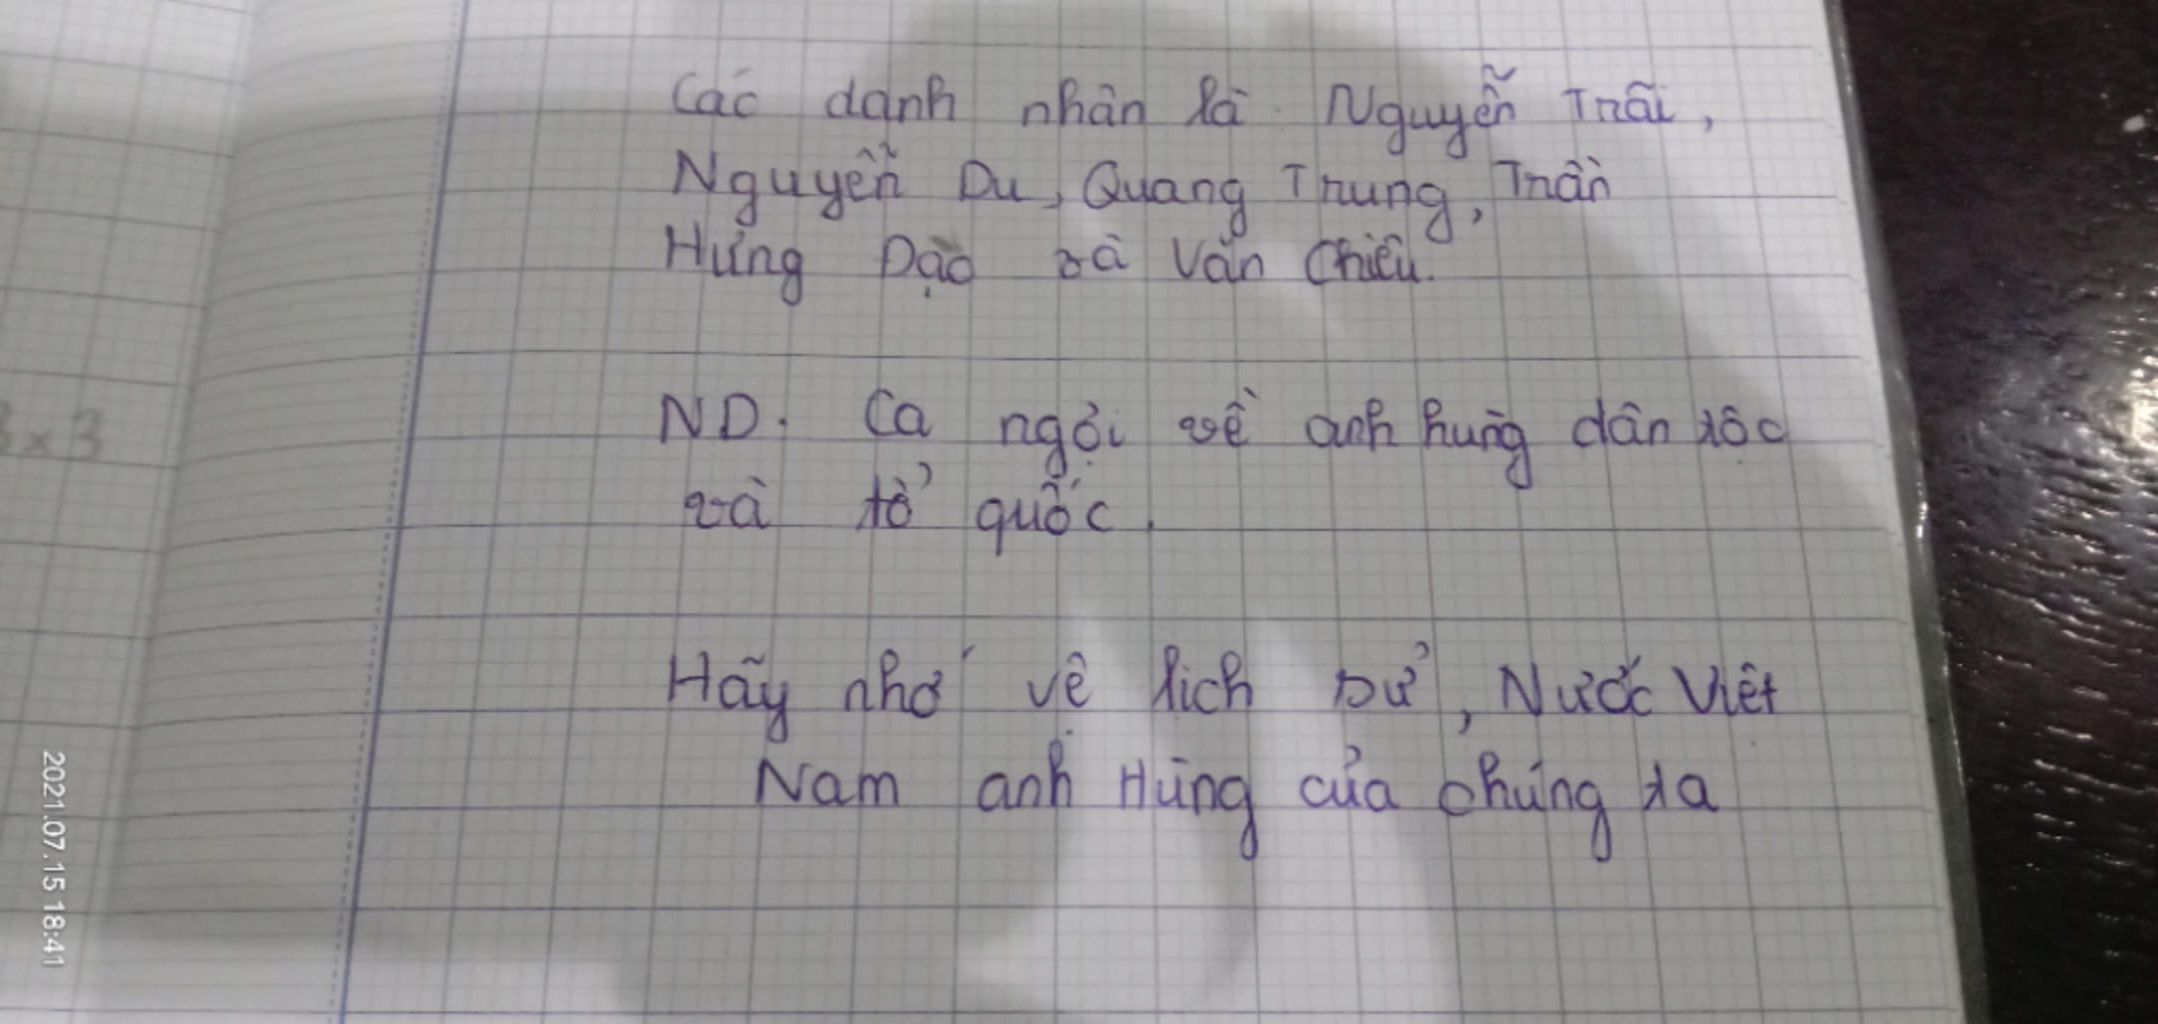 Các danh nhân là Nguyễn Trãi,
Nguyễn Du, Quang Trung, Trần
Hưng Đạo và Văn Chiêu.
ND: Ca ngợi về anh hùng dân tộc
và tổ quốc.
Hãy nhớ về lịch sử, Nước Việt
Nam anh Hùng của chúng ta
3x3
2021.07.15 18:41